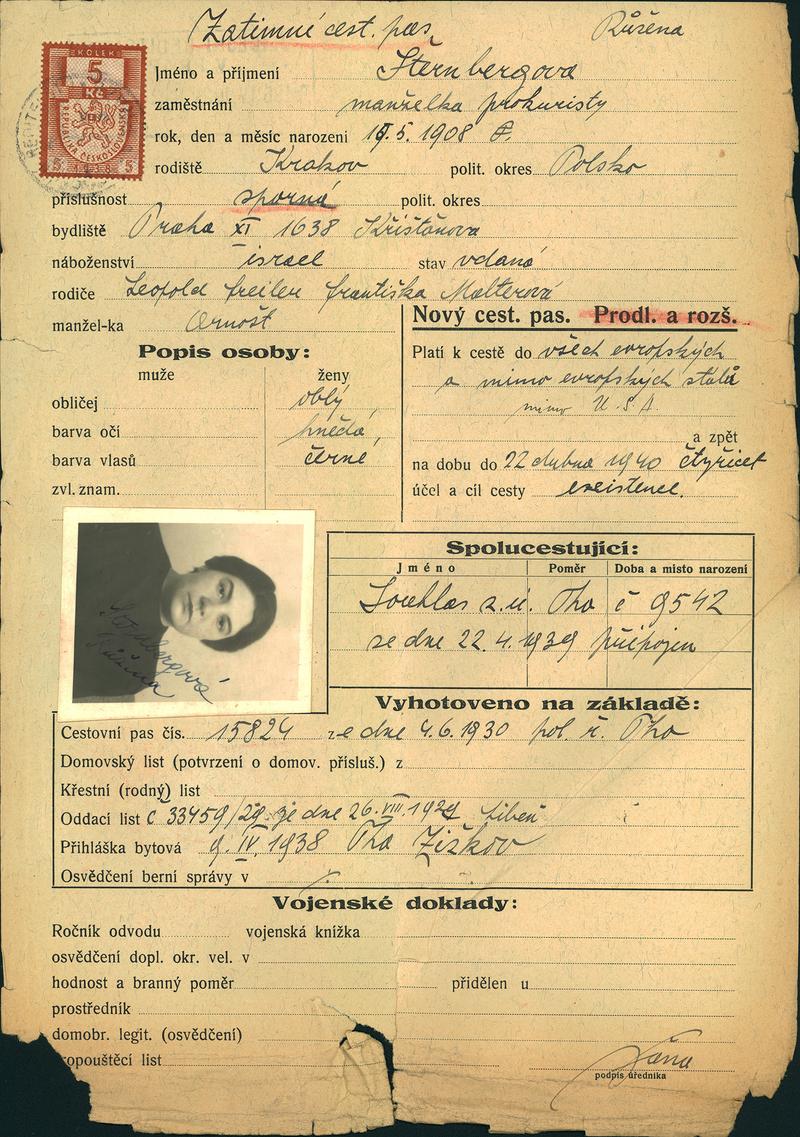 Zatimné cest. pas
Růžena
KOLEK
5
Kč
REPUBLIKA ČESKOSLOVENSKÁ
5 1938 5
Jméno a příjmení Šternbergova
zaměstnání manželka prokuristy
rok, den a měsíc narození 5. 1908
rodiště Krakov polit. okres Polsko
příslušnost sporná polit. okres
bydliště Praha XI 1638 Křišťanova
náboženství israel stav vdaná
rodiče Leopold Freiler Františka Malterová
manžel-ka Arnošt
Nový cest. pas. Prodl. a rozš.
Popis osoby:
muže ženy
obličej oblý
barva očí hnědá
barva vlasů černé
zvl. znam.
Platí k cestě do všech evropských
a mimo evropských států
mimo U.S.A.
a zpět
na dobu do 22 dubna 1940 čtyřicet
účel a cíl cesty existence.
Šternbergová
Růžena
Spolucestující:
Jméno Poměr Doba a misto narození
Souhlas z.ú. Pha č 9542
ze dne 22.4.1939 připojen
Vyhotoveno na základě:
Cestovní pas čís. 15824 ze dne 4.6.1930 pol. ř. Pha
Domovský list (potvrzení o domov. přísluš.) z
Křestní (rodný) list
Oddací list č 33459/29 ze dne 26.VIII.1929 Libeň
Přihláška bytová 9.IV.1938 Pha Žižkov
Osvědčení berní správy v
Vojenské doklady:
Ročník odvodu vojenská knížka
osvědčení dopl. okr. vel. v
hodnost a branný poměr přidělen u
prostředník
domobr. legit. (osvědčení)
ropouštěcí list
podpis úředníka